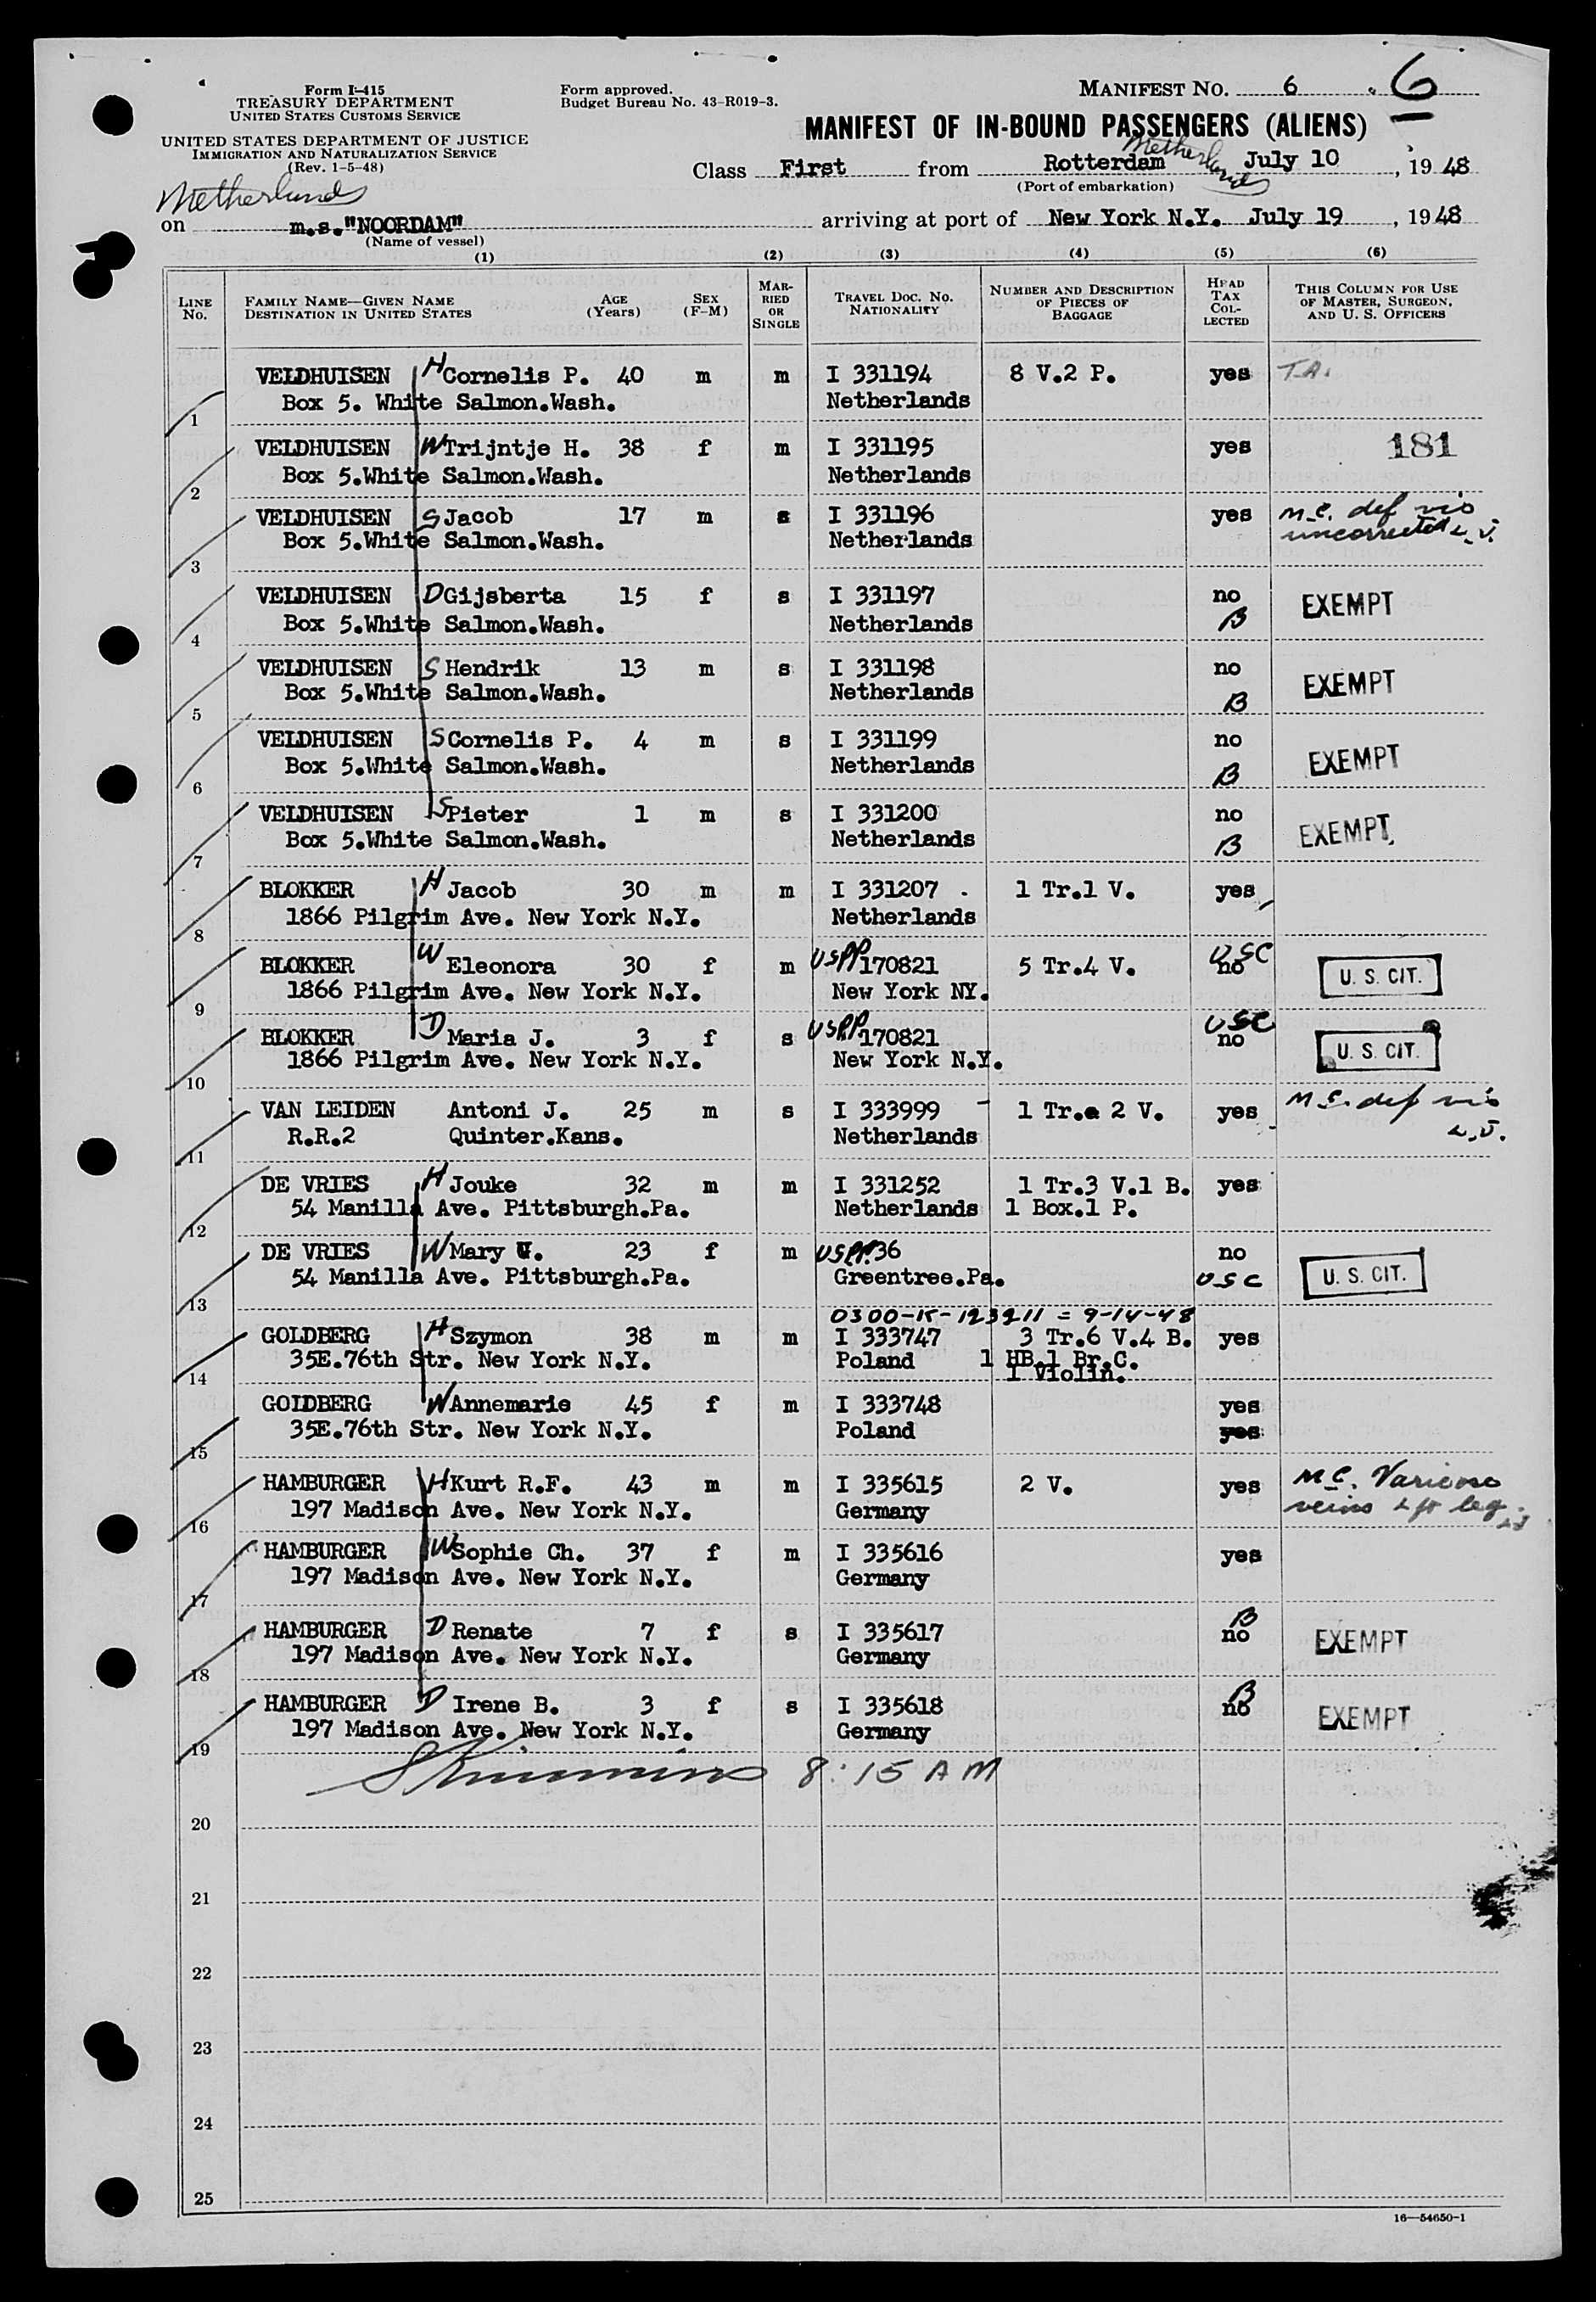 Form I-415
TREASURY DEPARTMENT
UNITED STATES CUSTOMS SERVICE
UNITED STATES DEPARTMENT OF JUSTICE
IMMIGRATION AND NATURALIZATION SERVICE
(Rev. 1-5-48)
Form approved.
Budget Bureau No. 43-R019-3.
MANIFEST NO. 6 6
MANIFEST OF IN-BOUND PASSENGERS (ALIENS)
Netherlands
Class First from Rotterdam July 10, 1948
(Port of embarkation)
Netherlands
on m.s."NOORDAM" arriving at port of New York N.Y. July 19, 1948
(Name of vessel)
(1) (2) (3) (4) (5) (6)
LINE NO. FAMILY NAME—GIVEN NAME DESTINATION IN UNITED STATES AGE (Years) SEX (F-M) MARRIED OR SINGLE TRAVEL DOC. NO. NATIONALITY NUMBER AND DESCRIPTION OF PIECES OF BAGGAGE HEAD TAX COLLECTED THIS COLUMN FOR USE OF MASTER, SURGEON, AND U. S. OFFICERS
VELDHUISEN H Cornelis P. 40 m m I 331194 8 V.2 P. yes T.A.
1 Box 5. White Salmon.Wash. Netherlands
VELDHUISEN W Trijntje H. 38 f m I 331195 yes 181
2 Box 5.White Salmon.Wash. Netherlands
VELDHUISEN S Jacob 17 m s I 331196 yes M.C. def vis
3 Box 5.White Salmon.Wash. Netherlands uncorrected
VELDHUISEN D Gijsberta 15 f s I 331197 no EXEMPT
4 Box 5.White Salmon.Wash. Netherlands B
VELDHUISEN S Hendrik 13 m s I 331198 no EXEMPT
5 Box 5.White Salmon.Wash. Netherlands B
VELDHUISEN S Cornelis P. 4 m s I 331199 no EXEMPT
6 Box 5.White Salmon.Wash. Netherlands B
VELDHUISEN S Pieter 1 m s I 331200 no EXEMPT
7 Box 5.White Salmon.Wash. Netherlands B
BLOKKER H Jacob 30 m m I 331207 1 Tr.1 V. yes
8 1866 Pilgrim Ave. New York N.Y. Netherlands
BLOKKER W Eleonora 30 f m USPP 170821 5 Tr.4 V. USC no U. S. CIT.
9 1866 Pilgrim Ave. New York N.Y. New York NY.
BLOKKER D Maria J. 3 f s USPP 170821 USC no U. S. CIT.
10 1866 Pilgrim Ave. New York N.Y. New York N.Y.
VAN LEIDEN Antoni J. 25 m s I 333999 1 Tr. 2 V. yes M.C. def vis
11 R.R.2 Quinter.Kans. Netherlands
DE VRIES H Jouke 32 m m I 331252 1 Tr.3 V.1 B. yes
12 54 Manilla Ave. Pittsburgh.Pa. Netherlands 1 Box.1 P.
DE VRIES W Mary 23 f m USPP. 36 no
13 54 Manilla Ave. Pittsburgh.Pa. Greentree.Pa. USC U. S. CIT.
0300-K-123211 = 9-14-48
GOLDBERG H Szymon 38 m m I 333747 3 Tr.6 V.4 B. yes
14 35E.76th Str. New York N.Y. Poland 1 HB.1 Br.C.
1 Violin.
GOLDBERG W Annemarie 45 f m I 333748 yes
15 35E.76th Str. New York N.Y. Poland yes
HAMBURGER H Kurt R.F. 43 m m I 335615 2 V. yes M.C. Varicose
16 197 Madison Ave. New York N.Y. Germany veins left leg
HAMBURGER W Sophie Ch. 37 f m I 335616 yes
17 197 Madison Ave. New York N.Y. Germany
HAMBURGER D Renate 7 f s I 335617 B no EXEMPT
18 197 Madison Ave. New York N.Y. Germany
HAMBURGER D Irene B. 3 f s I 335618 B no EXEMPT
19 197 Madison Ave. New York N.Y. Germany
8:15 AM
20
21
22
23
24
25
16—54650-1